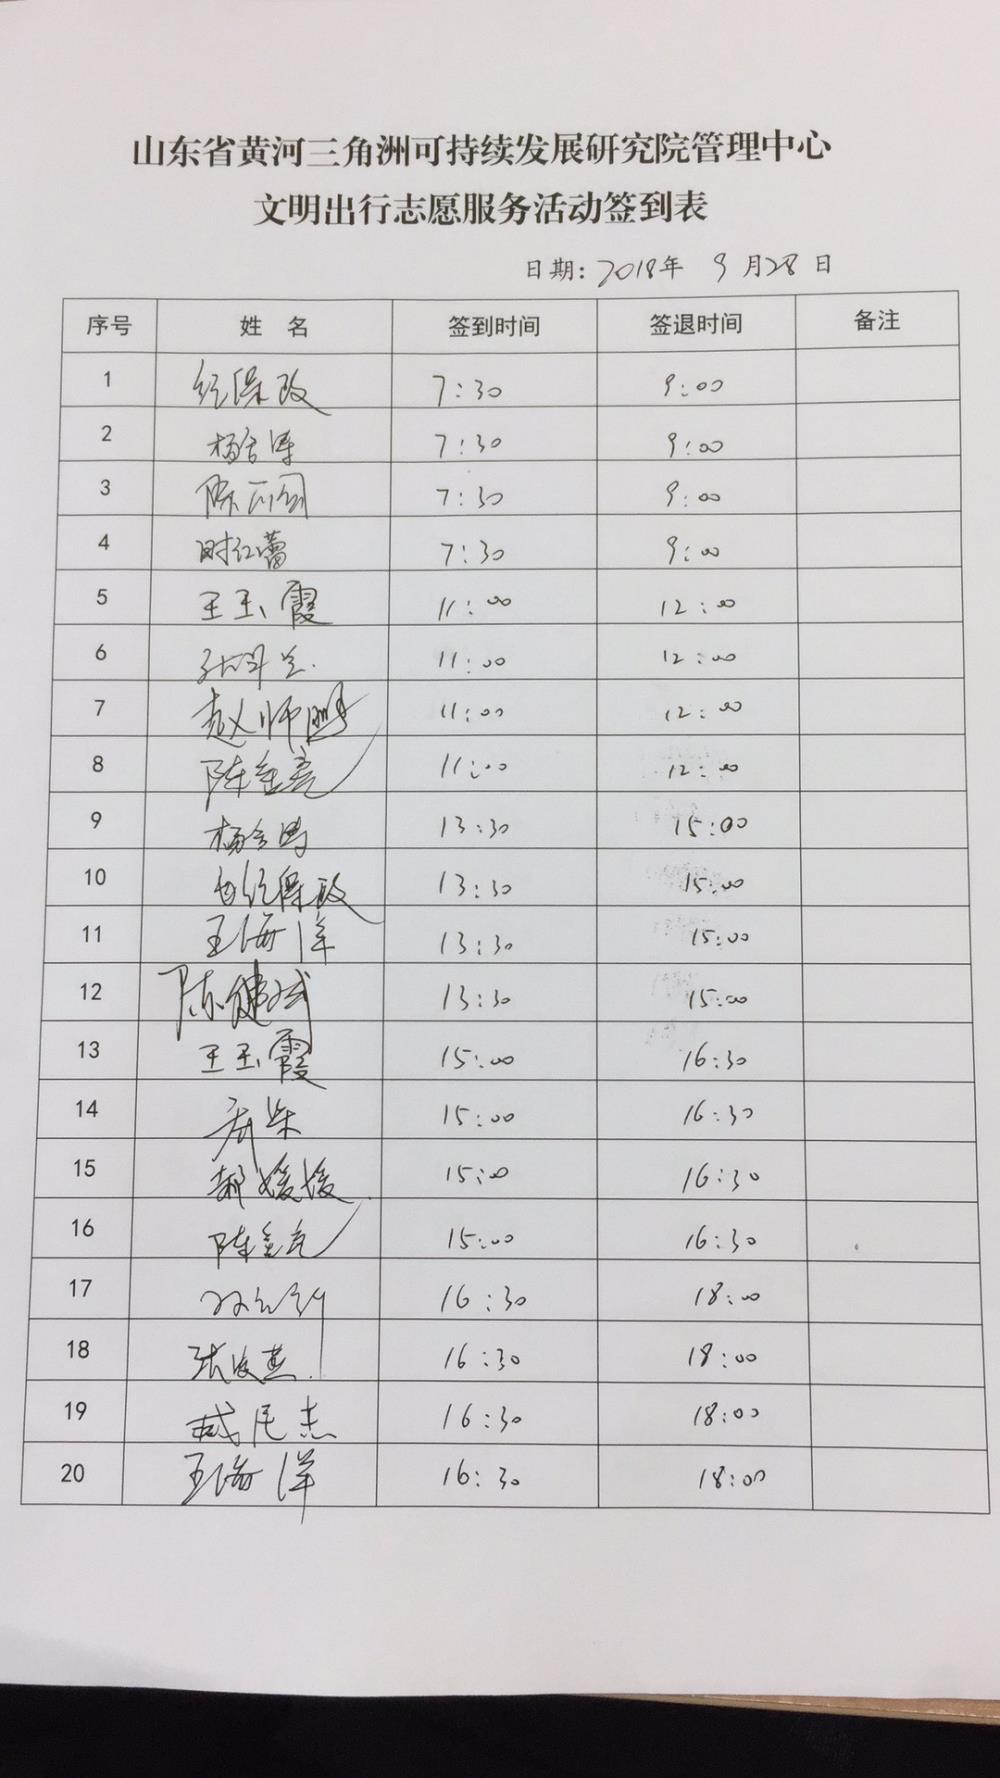 山东省黄河三角洲可持续发展研究院管理中心
文明出行志愿服务活动签到表
日期: 2018年 9月28日
序号 姓 名 签到时间 签退时间 备注
1 7:30 9:00
2 7:30 9:00
3 陈 7:30 9:00
4 时红蕾 7:30 9:00
5 王玉霞 11:00 12:00
6 11:00 12:00
7 赵师鹏 11:00 12:00
8 陈金亮 11:00 12:00
9 13:30 15:00
10 13:30 15:00
11 王海洋 13:30 15:00
12 陈健斌 13:30 15:00
13 王玉霞 15:00 16:30
14 15:00 16:30
15 郝媛媛 15:00 16:30
16 陈金亮 15:00 16:30
17 16:30 18:00
18 16:30 18:00
19 16:30 18:00
20 王海洋 16:30 18:00